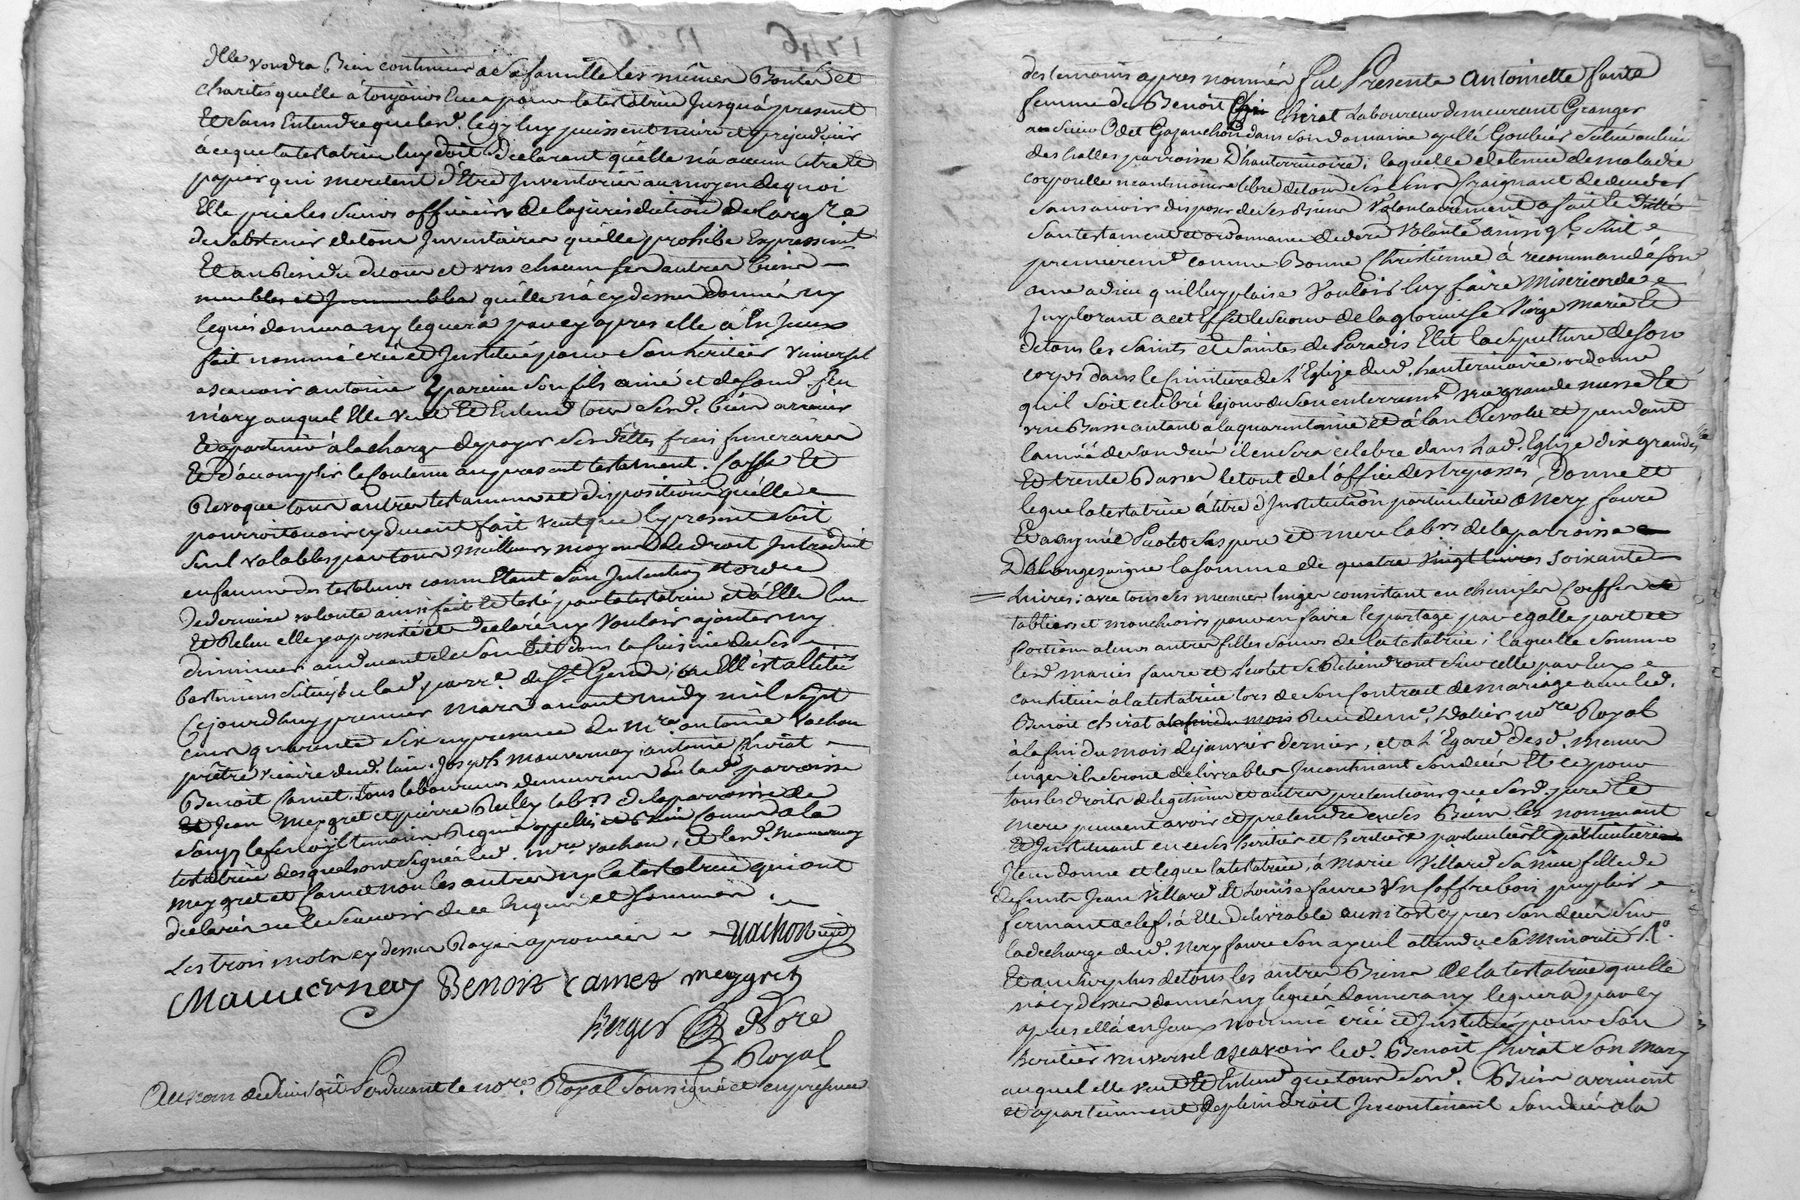 Elle voudra Bien continuer a sa famille les mêmes Bontés et
charités quelle à toujours Eue pour la testatrice Jusqu'à present
Et sans Entendre que led. legs luy puissent nuire et prejudicier
à ce que la testatrice luy doit declarant qu'elle n'a aucun titre et
papier qui meritent d'Etre Inventoriés au moyen de quoi
Elle prie les sieurs officiers de la jurisdiction
de s'abstenir de tous Inventaires qu'elle prohibe Expressém.t
Et au Residu de tous et uns chacuns ses autres biens
meubles et Immeubles qu'elle n'a cy dessus donnés ny
legués donnera ny leguera par cy apres elle à
fait nommé créé et Institué pour son heritier universel
ascavoir antoine Eparcieu son fils ainé et de son d. feu
mary auquel Elle veut Et Entend tous sesd. biens arriver
Et apartenir à la charge de payer ses dettes frais funeraires
Et d'accomplir le Contenu au present testament. Casse Et
Revoque tous autres testaments et dispositions qu'elle
pourroit avoir cy devant fait veut que le present soit
seul valable par tous meilleurs moyens de droit Introduit
en faveur des testateurs comme Etant son Intention et ordre
de derniere volonté ainsi fait Et testé par la testatrice et à Elle lu
Et Relu elle y a persisté et declaré ny vouloir ajouter ny
diminuer au devant de son lit dans la Cuisine de ses
bastiments situés en lad. parr.e de S.t Genis, ou Elle est alitée
Cejourd'huy premier Mars avant midy mil sept
cens quarante six en presence de m.re antoine vachon
prêtre vicaire dud. lieu, Joseph mauvernay, antoine Chirat
Benoit Camet, tous laboureurs demeurans En lad. parroisse
Et Jean Meygret et pierre Reilly lab.rs de la parroisse de
temoins Requis appellés et
testatrice desquels ont signé led. m.re vachon, et lesd. Mauvernay
meygret et Camet non les autres ny la testatrice qui ont
declarés ne le scavoir de ce Enquis et sommés
Les trois mots cy dessus Rayés aprouvés
Vachon vic.
Mauvernay Benoit Camet meygret
Berger Nore
Royal
Au nom de Dieu soit Pardevant le no.re Royal soussigné et en presence
des temoins apres nommés fut Presente antoinette faure
femme de Benoit Chirat Laboureur demeurant Granger
a Sieur Odet dans son domaine apellé
des halles parroisse D'hauterivoire, laquelle detenue de maladie
corporelle neantmoins libre de tous ses sens Craignant de deceder
sans avoir disposer de ses Biens volontairement a fait
son testament et ordonnance de dere volonté ainsi q.l suit
premierem.t comme Bonne Christienne à recommandé son
ame a dieu qu'il luy plaise vouloir luy faire Misericorde
Implorant a cet Effet le secours de la glorieuse Vierge Marie Et
de tous les saints et saintes de Paradis Elit la sepulture de son
corps dans le cimitiere de l'Eglize dud. hauterivoire, ordonne
qu'il soit celebré le jour de son enterrem.t une grande messe et
une Basse autant à la quarantaine et à l'an Revolu et pendant
l'année de son decés il en sera celebré dans lad. Eglize dix grandes
Et trente Basses le tout de l'office des trepassés, Donne et
legue la testatrice à titre d'Institution particuliere à Nery faure
Et a Aymée Piolet ses pere et mere lab.rs de la parroisse
De longesaigne la somme de quatre vingt livres soixante
Livres; avec tous ses menus linges consistant en chemises Coeffes
tabliers et mouchoirs pour en faire le partage par egalle part et
portion a leurs autres filles soeurs de la testatrice; laquelle somme
lesd. mariés faure et Piolet se Retiendront sur celle par Eux
constituée à la testatrice lors de son Contract de mariage avec led.
Benoit chirat a la fin du mois Receu de m.e no.re Royal
à la fin du mois de janvier dernier, et a l'Egard desd. menus
linges ils seront delivrables Incontinant son decés Et ce pour
tous les droits de legitime et autres pretentions que sesd. pere Et
mere peuvent avoir et pretendre en ses Biens les nommant
Et Instituant en ce ses heritier et heritiere particuliers
Item donne et legue la testatrice, à Marie Villard sa niece fille de
defunts Jean Villard Et Louise faure Un Coffre bois
fermant a clef, à Elle delivrable aussi tost apres son decés sur
la decharge dud. Nery faure son ayeul attendu sa minorité
Et au surplus de tous les autres Biens de la testatrice qu'elle
n'a cy dessus donnés ny legués donnera ny leguera par cy
apres ella nommé créé et Institué pour son
heritier universel ascavoir led. Benoit Chirat son Mary
auquel elle veut Et Entend que tous sesd. Biens arrivent
et apartiennent de plein droit Incontinent son decés a la